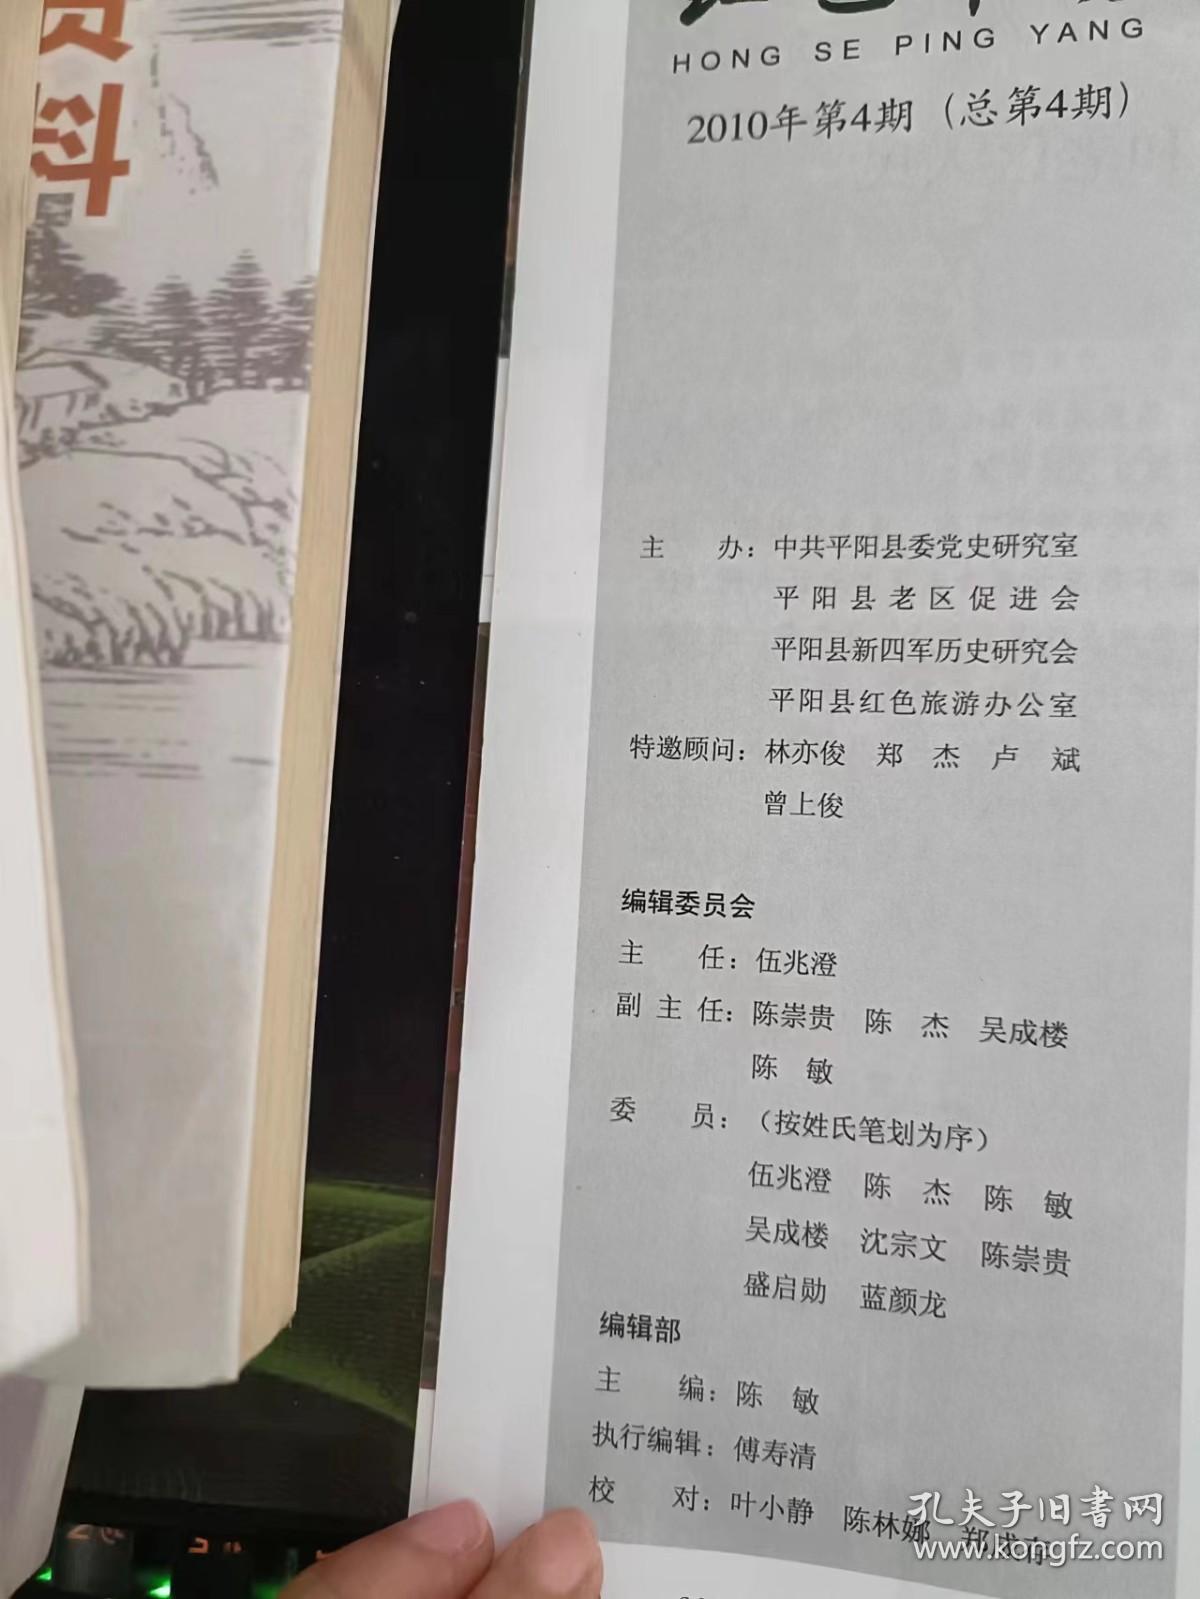 HONG SE PING YANG
2010年第4期（总第4期）
主 办：中共平阳县委党史研究室
平阳县老区促进会
平阳县新四军历史研究会
平阳县红色旅游办公室
特邀顾问：林亦俊 郑 杰 卢 斌
曾上俊
编辑委员会
主 任：伍兆澄
副主任：陈崇贵 陈 杰 吴成楼
陈 敏
委 员：（按姓氏笔划为序）
伍兆澄 陈 杰 陈 敏
吴成楼 沈宗文 陈崇贵
盛启勋 蓝颜龙
编辑部
主 编：陈 敏
执行编辑：傅寿清
校 对：叶小静 陈林娜 郑成存
孔夫子旧书网
www.kongfz.com